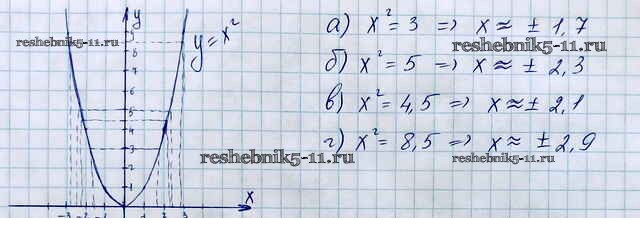 y
y = x²
9
8
6
5
4
3
2
1
-3 -2 -1 1 2 3 x
а) x² = 3 => x ≈ ± 1,7
б) x² = 5 => x ≈ ± 2,3
в) x² = 4,5 => x ≈ ± 2,1
г) x² = 8,5 => x ≈ ± 2,9
reshebnik5-11.ru
reshebnik5-11.ru
reshebnik5-11.ru
reshebnik5-11.ru